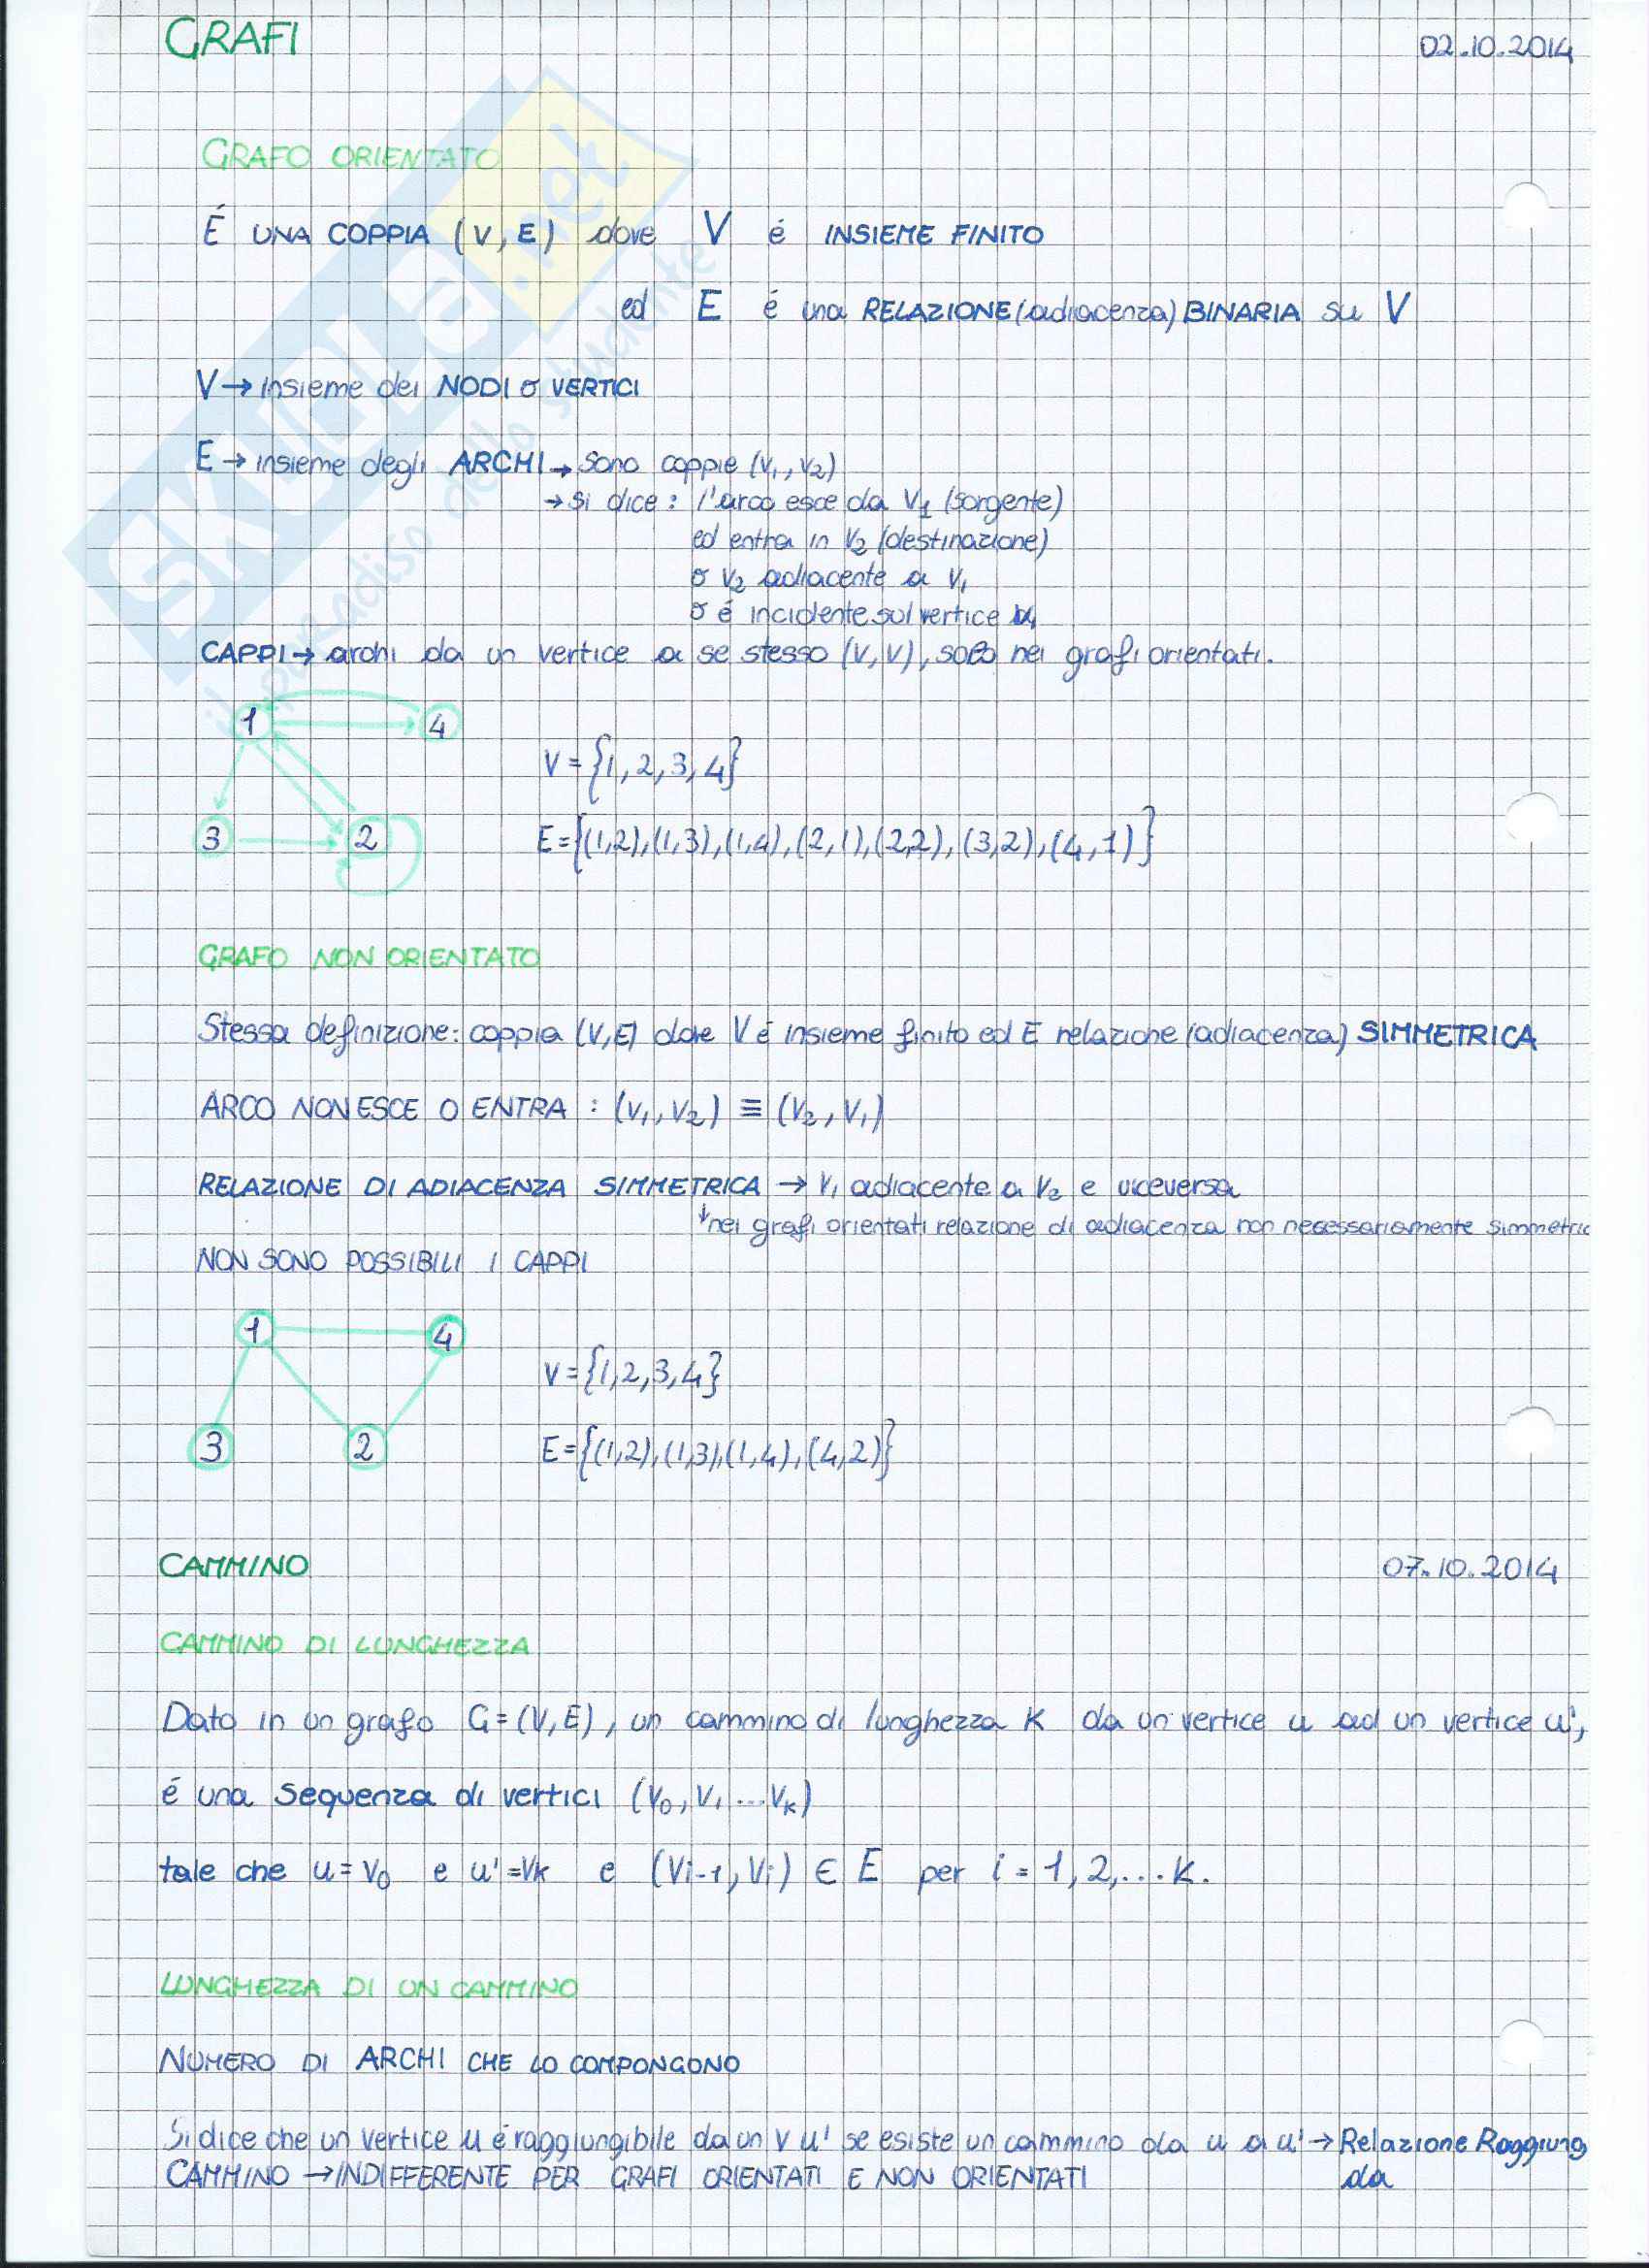 GRAFI
02.10.2014
GRAFO ORIENTATO
É UNA COPPIA (V, E) dove V é INSIEME FINITO
ed E é una RELAZIONE (adiacenza) BINARIA su V
V → insieme dei NODI o VERTICI
E → insieme degli ARCHI → sono coppie (v₁, v₂)
→ si dice: l'arco esce da V₁ (sorgente)
ed entra in V₂ (destinazione)
o v₂ adiacente a v₁
o é incidente sul vertice
CAPPI → archi da un vertice a se stesso (v, v), solo nei grafi orientati.
1 4
V = {1, 2, 3, 4}
3 2
E = {(1,2),(1,3),(1,4),(2,1),(2,2),(3,2),(4,1)}
GRAFO NON ORIENTATO
Stessa definizione: coppia (V,E) dove V é insieme finito ed E relazione (adiacenza) SIMMETRICA
ARCO NON ESCE O ENTRA : (v₁, v₂) ≡ (v₂, v₁)
RELAZIONE DI ADIACENZA SIMMETRICA → v₁ adiacente a v₂ e viceversa
↓ nei grafi orientati relazione di adiacenza non necessariamente simmetric
NON SONO POSSIBILI I CAPPI
1 4
V = {1,2,3,4}
3 2
E = {(1,2),(1,3),(1,4),(4,2)}
CAMMINO
07.10.2014
CAMMINO DI LUNGHEZZA
Dato in un grafo G = (V, E), un cammino di lunghezza K da un vertice u ad un vertice u',
é una sequenza di vertici (v₀, v₁ ... vₖ)
tale che u = v₀ e u' = vₖ e (vᵢ₋₁, vᵢ) ∈ E per i = 1, 2, ... k.
LUNGHEZZA DI UN CAMMINO
NUMERO DI ARCHI CHE LO COMPONGONO
Si dice che un vertice u é raggiungibile da un v u' se esiste un cammino da u a u' → Relazione Raggiung
CAMMINO → INDIFFERENTE PER GRAFI ORIENTATI E NON ORIENTATI da
SKUOLA.net
il paradiso dello studente